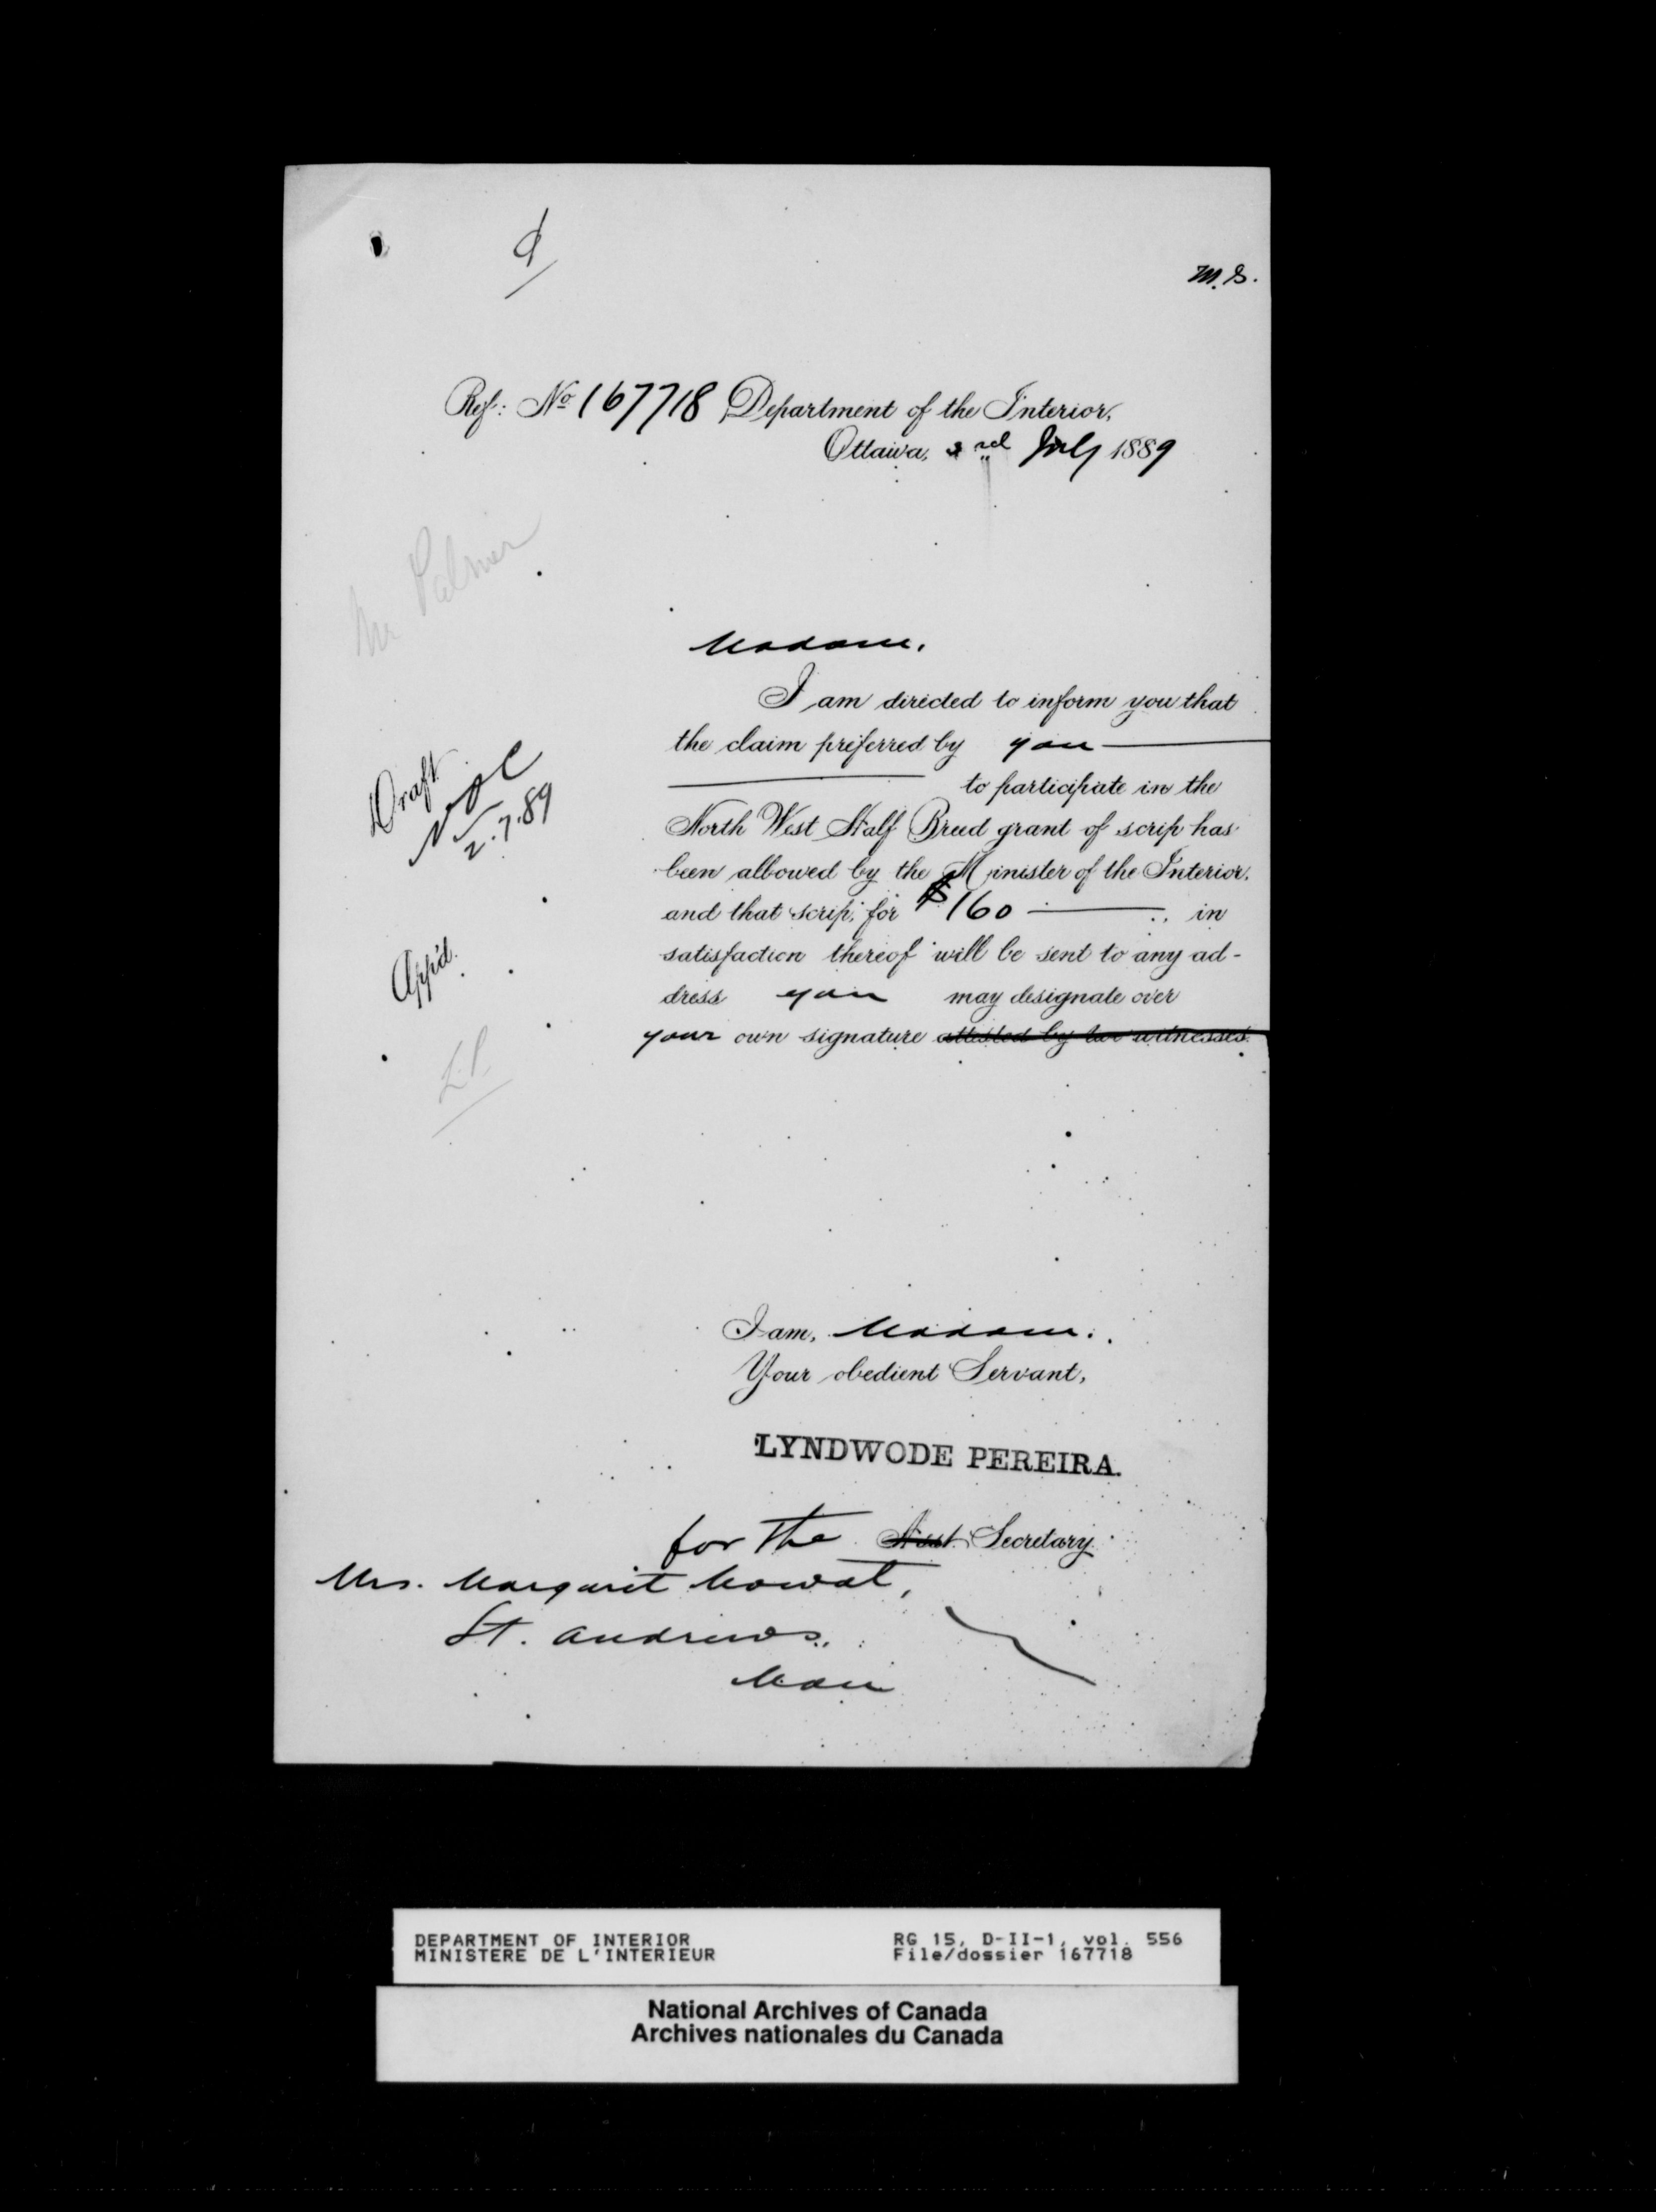 M.S.
Ref: No 167718 Department of the Interior,
Ottawa, 3rd July 1889
Mr Palmer
Madam,
I am directed to inform you that
the claim preferred by you
to participate in the
North West Half Breed grant of scrip has
been allowed by the Minister of the Interior,
and that scrip, for $160 in
satisfaction thereof will be sent to any ad-
dress you may designate over
your own signature attested by two witnesses.
Draft
2.7.89
App'd.
L.P.
I am, Madam.
Your obedient Servant,
LYNDWODE PEREIRA.
for the Asst. Secretary.
Mrs. Margaret Mowat,
St. Andrews,
Man
DEPARTMENT OF INTERIOR RG 15, D-II-1, vol. 556
MINISTERE DE L'INTERIEUR File/dossier 167718
National Archives of Canada
Archives nationales du Canada